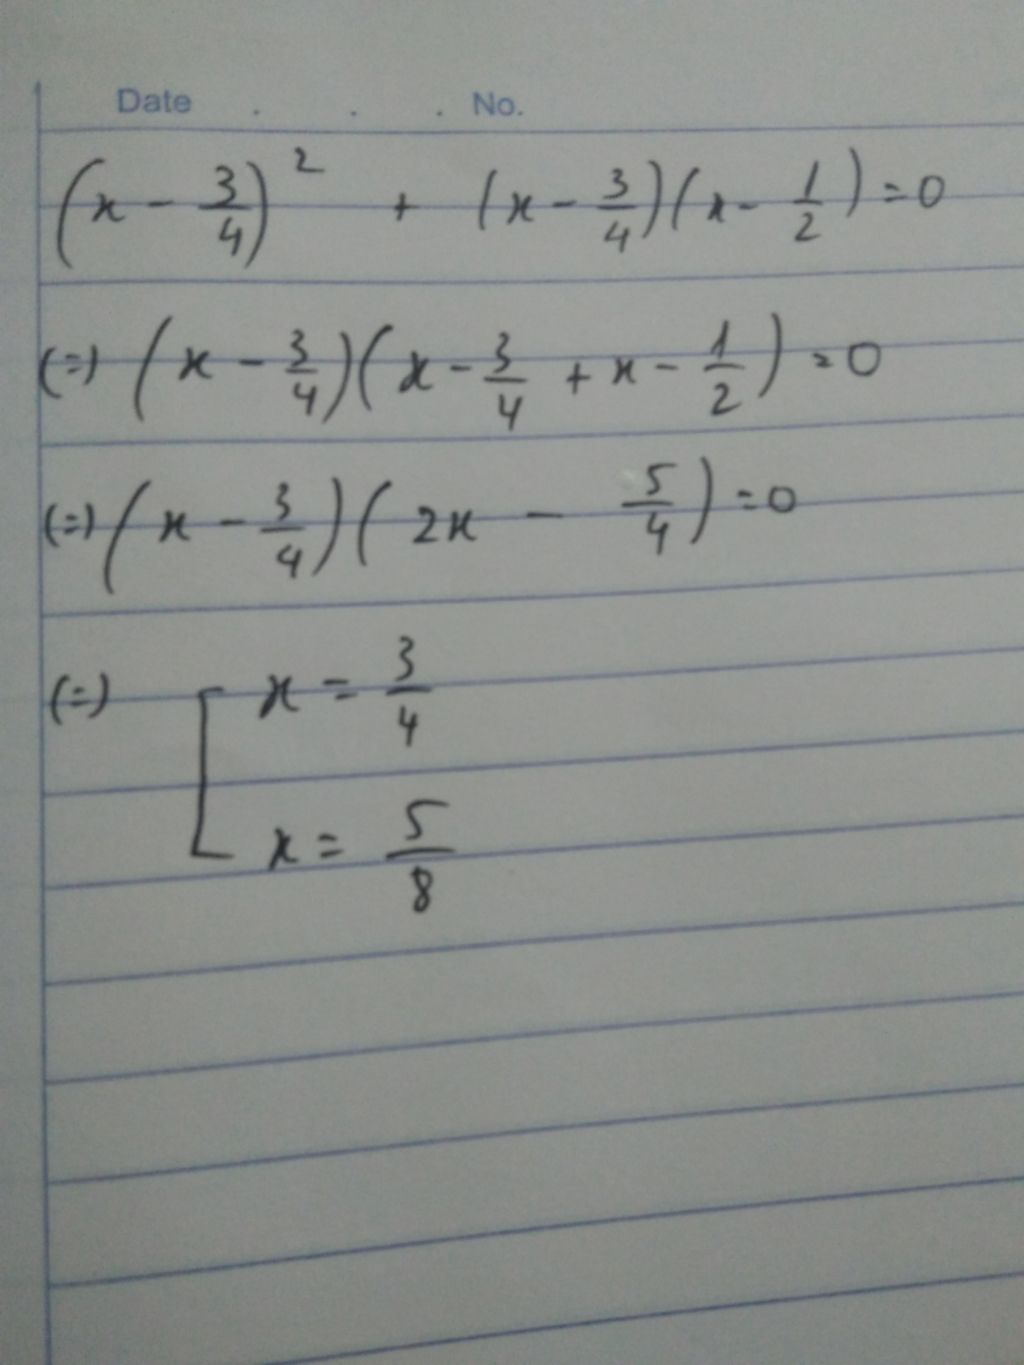 Date . . . No.
(x - 3/4)² + (x - 3/4)(x - 1/2) = 0
(=) (x - 3/4)(x - 3/4 + x - 1/2) = 0
(=) (x - 3/4)(2x - 5/4) = 0
(=) [ x = 3/4
x = 5/8